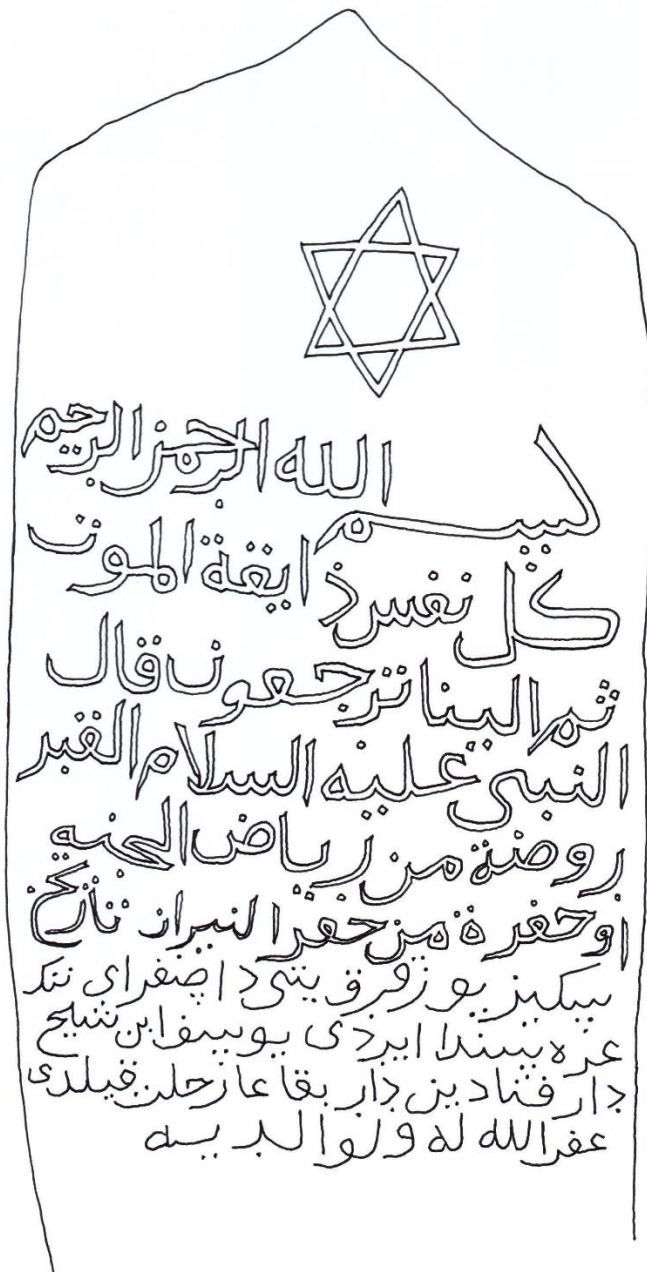 بسم الله الرحمن الرحيم
كل نفس ذايقة الموت
ثم الينا ترجعون قال
النبي عليه السلام القبر
روضة من رياض الجنه
او حفرة من حفر النيران تاريخ
سيكيز يوز قرق يتى دا صفر اى ننك
غره سندا ايردى يوسف ابن شيخ
دار فنادين دار بقاغا رحلت قيلدى
غفر الله له ولوالديه